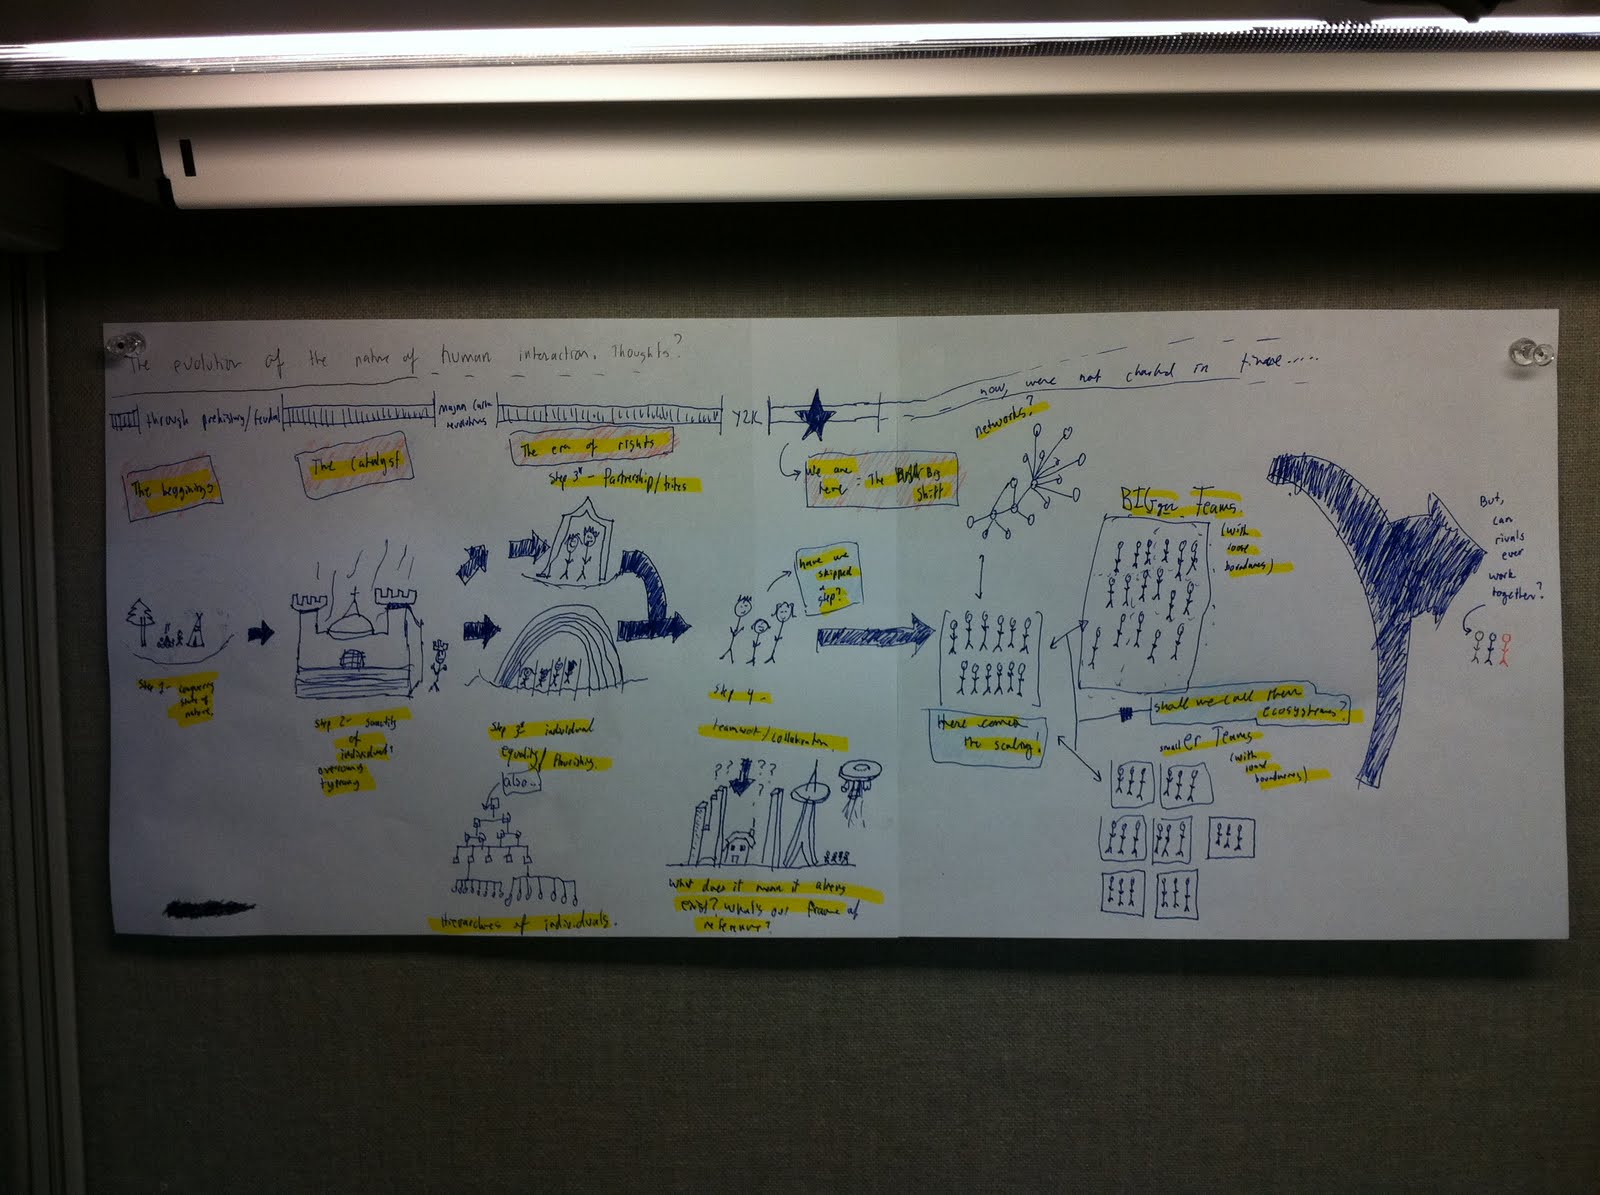 The evolution of the nature of human interaction. Thoughts?
now, were not charted in time.....
through prehistory/feudal
Magna Carta
revolutions
Y2K
The beggining
The Catalyst
The era of rights
Step 3* - Partnership/
We are
here = The Big
Shift
networks?
BIGger Teams
(with
loose
boundaries)
But,
can
rivals
ever
work
together?
have we
skipped
a
step?
Step 1 - conquering
state of
nature.
Step 2 - sanctity
of
individual?
overcoming
tyranny
Step 3* individual
equality/flourishing.
also..
Hierarchies of individuals.
Step 4 -
teamwork/collaboration.
???  ???
?
What does it mean it always
exist? What's our frame of
reference?
Here comes
the scaling!
shall we call them
ecosystems?
smaller Teams
(with
boundaries)